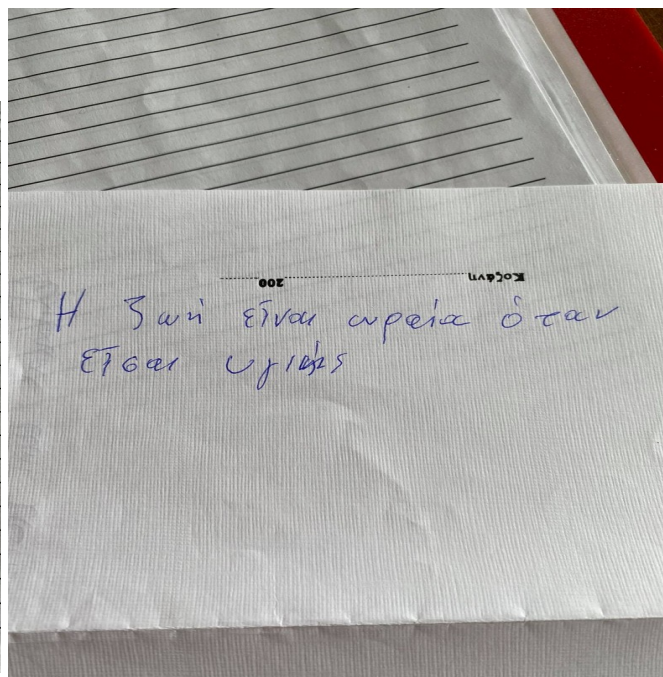 Κοζάνη 200
Η ζωή είναι ωραία όταν
είσαι υγιής